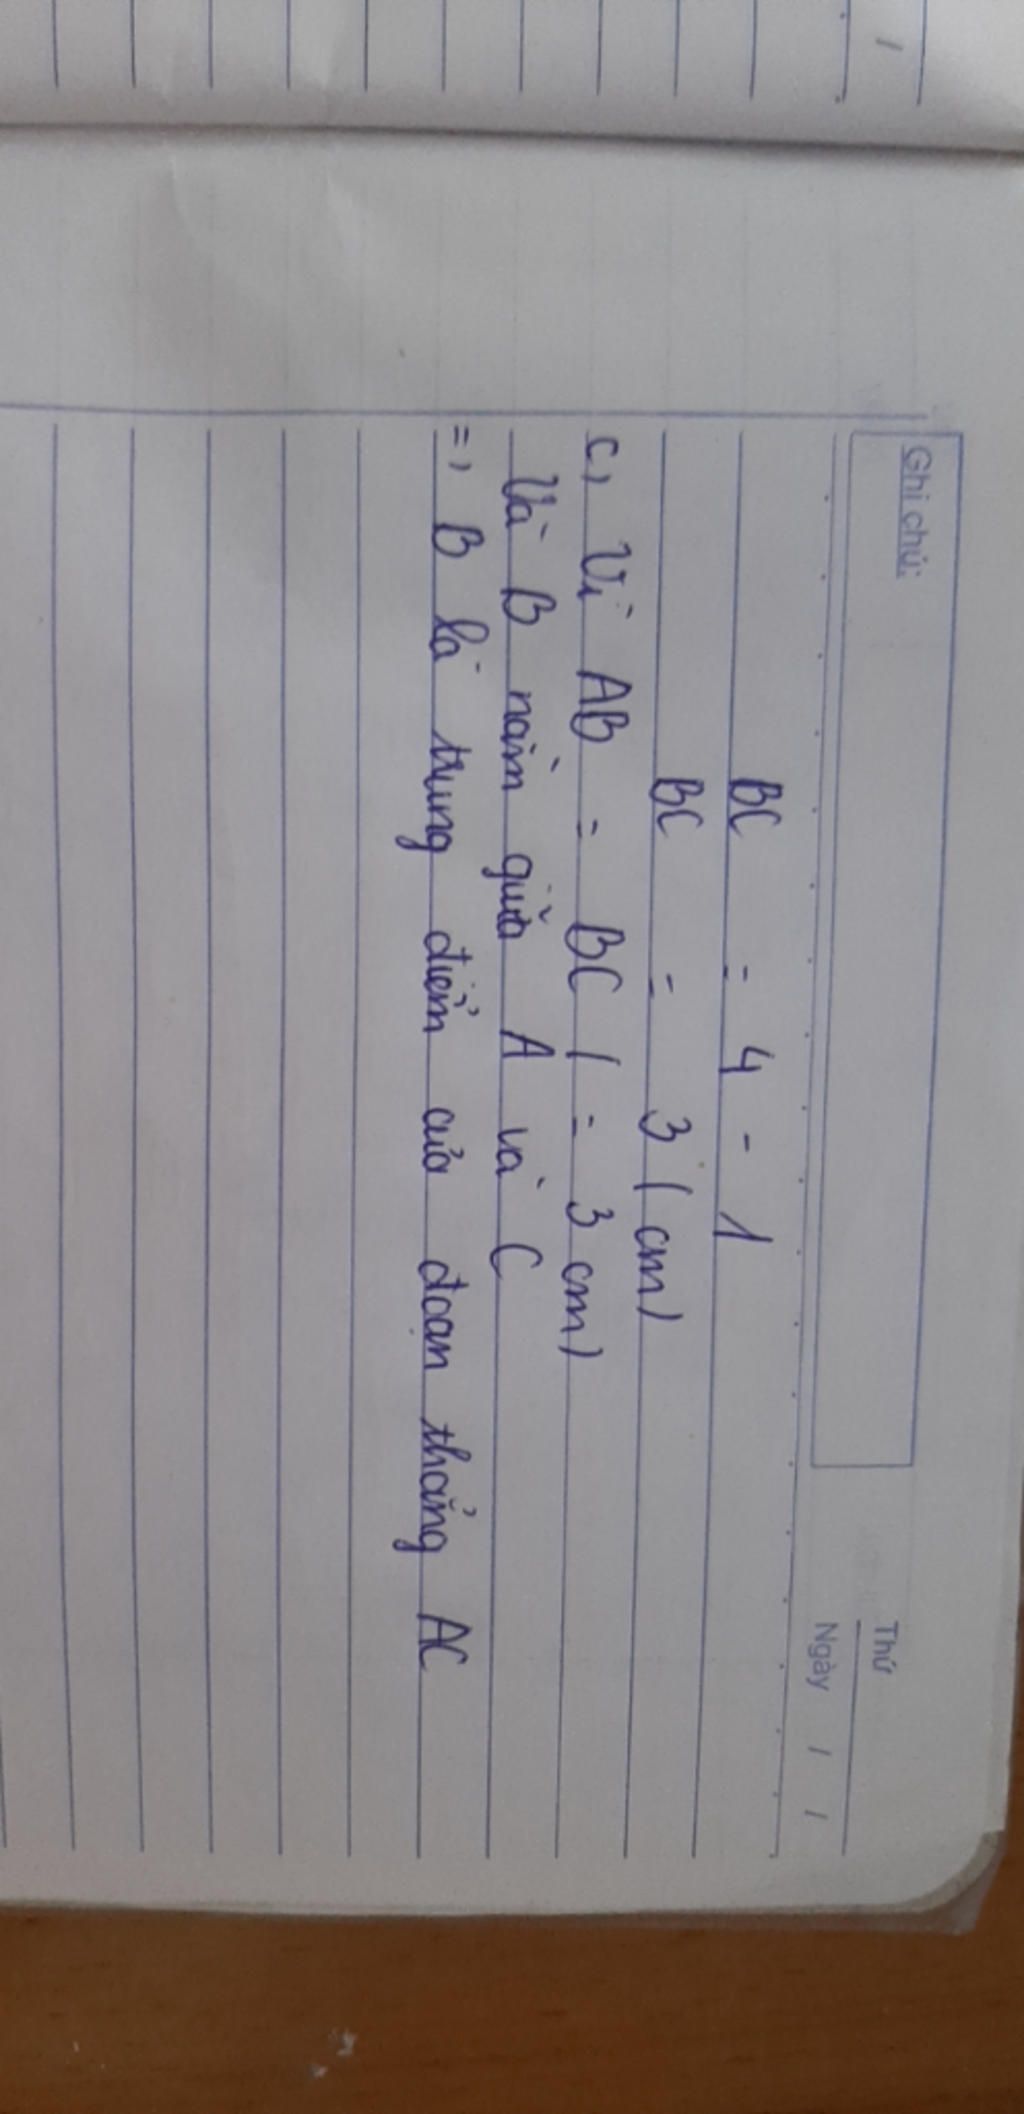 Ghi chú:
Thứ
Ngày / /
BC = 4 - 1
BC = 3 (cm)
c, Vì AB = BC ( = 3 cm)
Và B nằm giữa A và C
=, B là trung điểm của đoạn thẳng AC